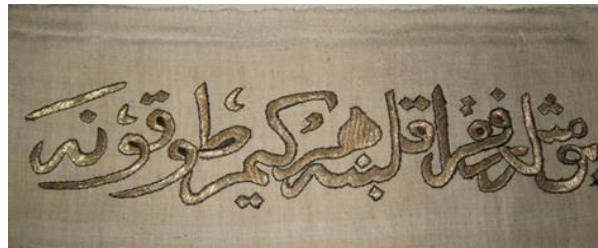 بو فقرا قلبنه هر كيم طوقونه